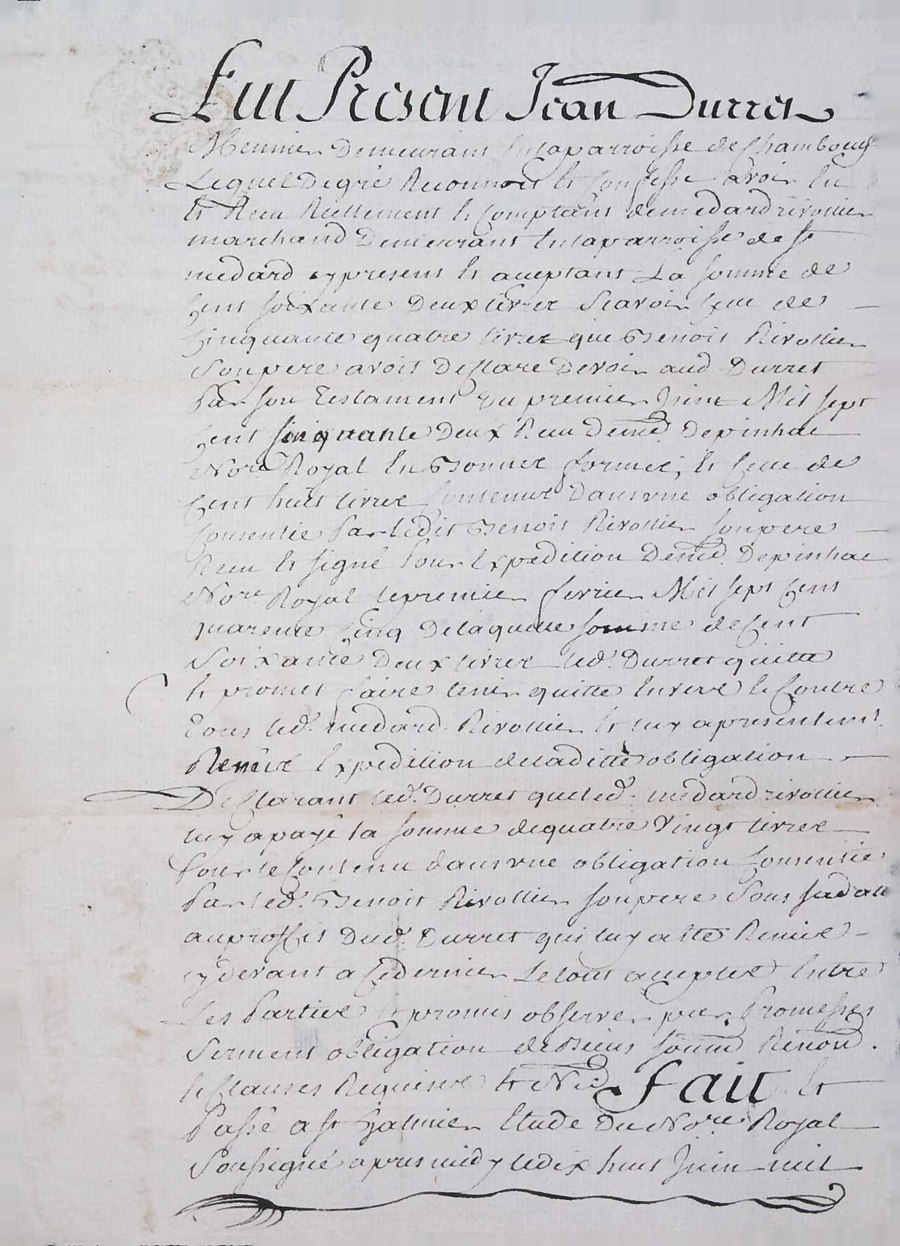 Fut Present Jean Durret
Meunier Demeurant En la parroisse de Chambeuf
Lequel De gré Reconnoit Et Confesse avoir Eu
Et Receu Reellement Et Comptant de medard rivollier
marchand Demeurant En la parroisse de St
medard cy present Et aceptant La somme de
Cent soixante Deux livres Scavoir Celle de
Cinquante quatre livres que Benoit Rivollier
Son pere avoit Declaré Devoir aud Durret
Par son Testament Du premier Juin Mil sept
Cent Cinquante Deux Receu De me Depinhac
Nore Royal En Bonnes formes, Et Celle de
Cent huit livres Contenue Dans une obligation
Consentie Par ledit Benoit Rivollier son pere
Receu Et signé Pour Expedition De me Depinhac
Nore Royal le premier fevrier Mil sept Cent
quarente Cinq De laquelle somme de Cent
Soixante Deux livres led. Durret quitte
Et promet faire tenir quitte Envers Et Contre
Tous led. medard Rivollier Et luy a presentemt
Remis Expedition de laditte obligation
Declarant led. Durret que led. medard rivollier
luy a payé la somme de quatre Vingt livres
Pour le Contenu dans une obligation Consentie
Par led. Benoit Rivollier son pere Sous sa datte
au proffit Dud. Durret qui luy a Eté Remise
cy devant a Ce dernier Le tout accepté Entre
Les Parties Et promis observer par Promesses
Serment obligation de Biens Renon.
Et Clauses Requises Et Fait Et
Passé a St Galmier Etude Du Nore Royal
Soussigné apres midy le dix huit Juin mil